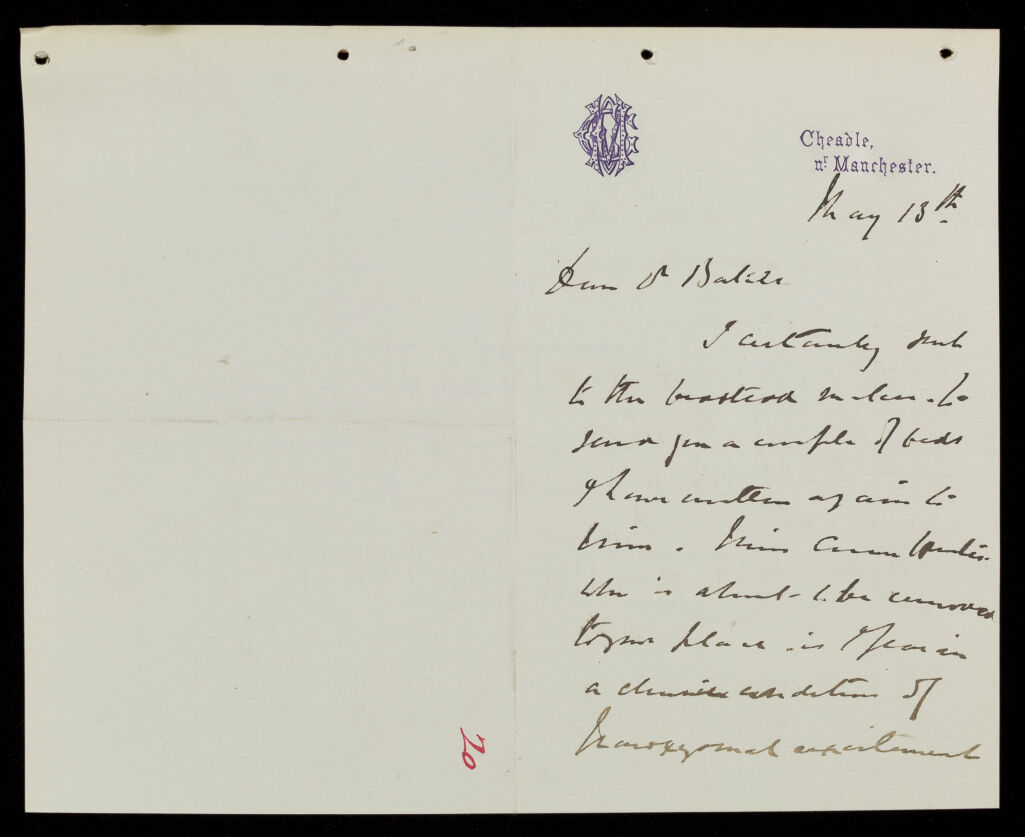 Cheadle,
nr Manchester.
May 13th
Dear Dr Baker
I certainly sent
to the bedstead maker to
send you a couple of beds
& have written again to
him. Miss
who is about to be removed
to your place is I fear in
a chronic condition of
Paroxysmal excitement
20